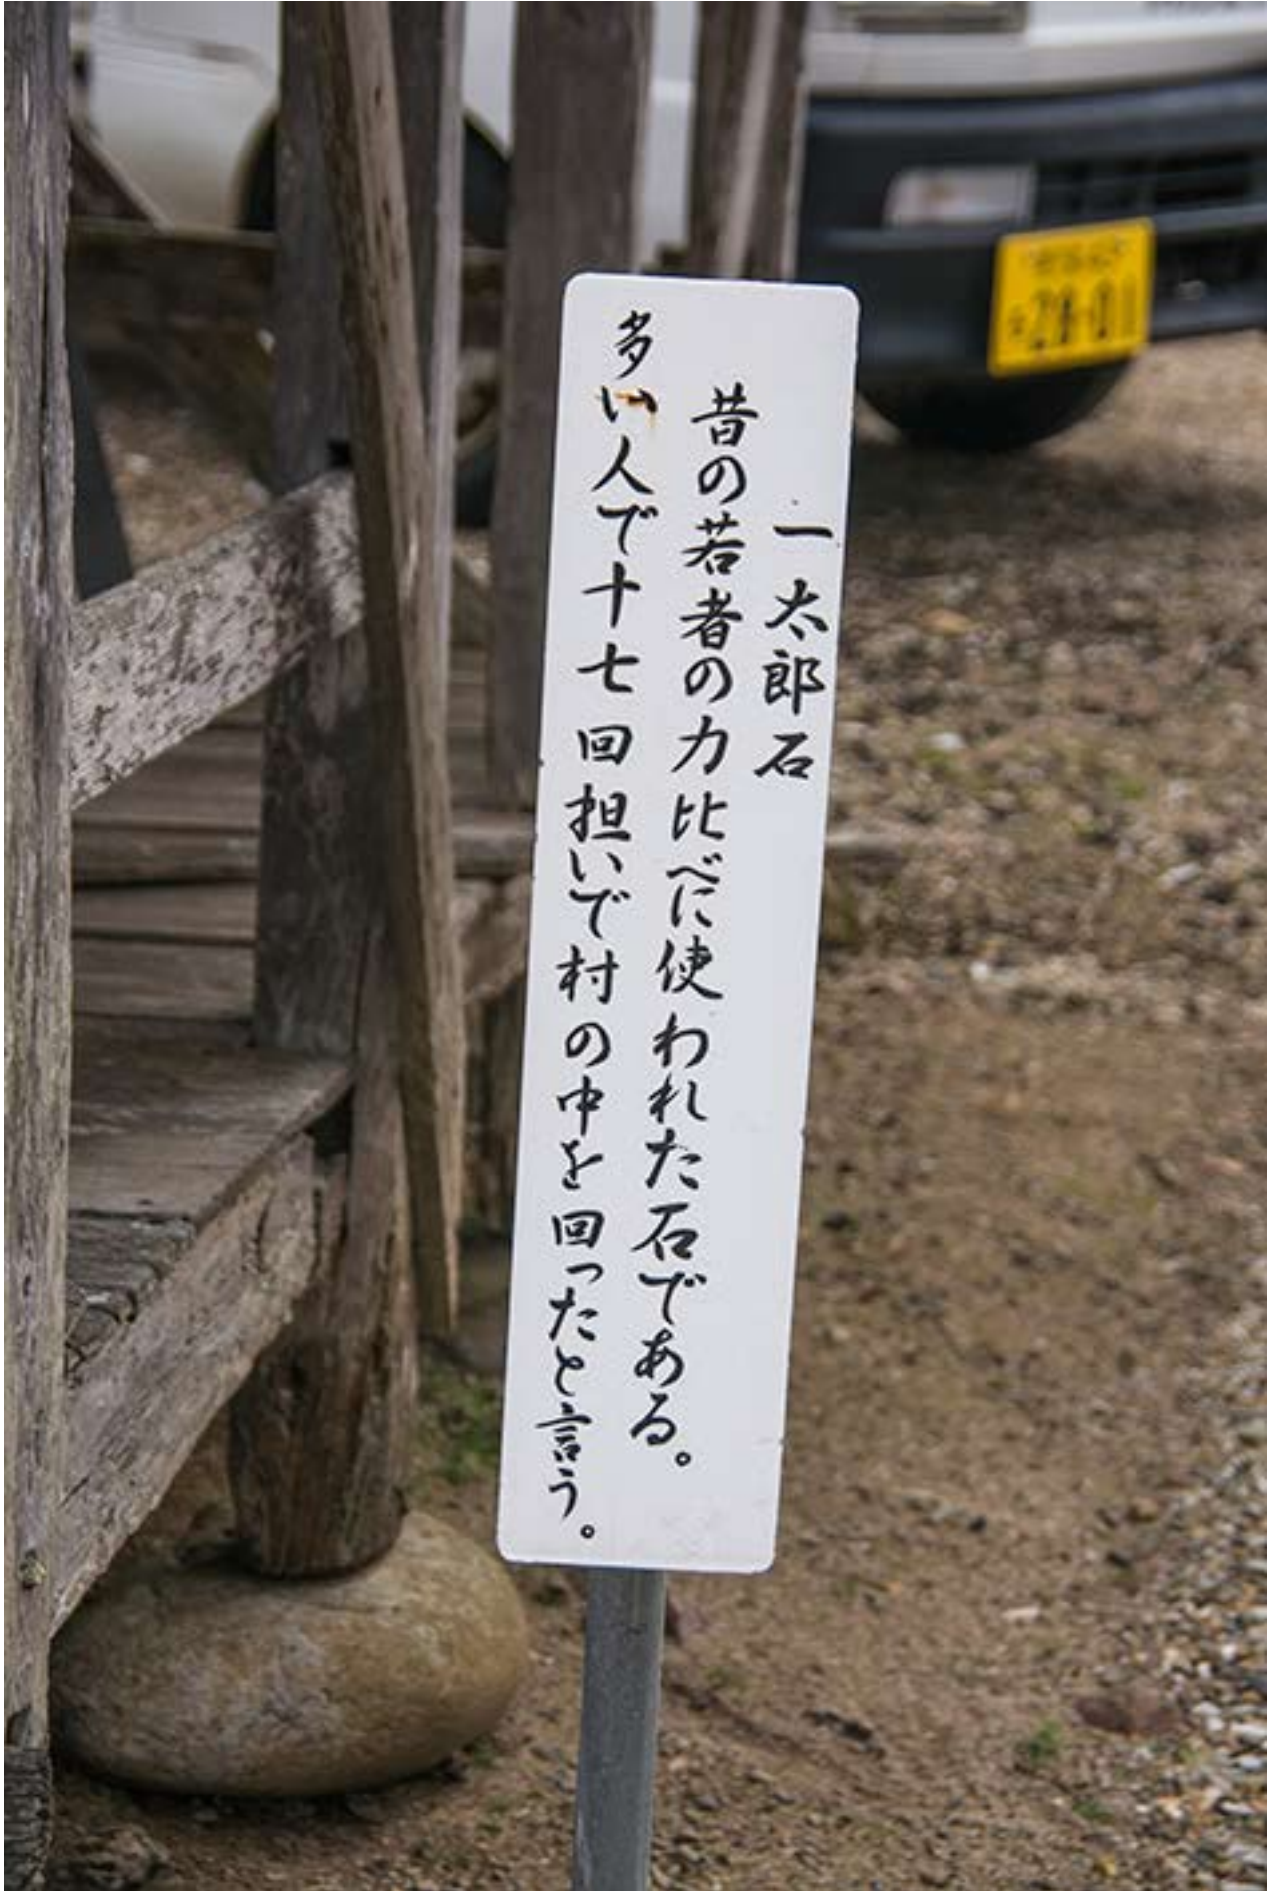 一太郎石
昔の若者の力比べに使われた石である。
多い人で十七回担いで村の中を回ったと言う。
28-01